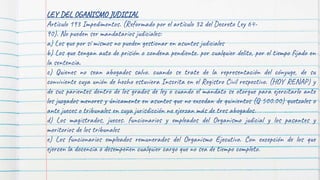 LEY DEL OGANISMO JUDICIAL
Artículo 193 Impedimentos. (Reformado por el artículo 32 del Decreto Ley 64-
90). No pueden ser mandatarios judiciales:
a) Los que por sí mismos no pueden gestionar en asuntos judiciales
b) Los que tengan auto de prisión o condena pendente, por cualquier delito, por el tiempo fijado en
la sentencia.
c) Quienes no sean abogados salvo, cuando se trate de la representación del cónyuge, de su
conviviente cuya unión de hecho estuviere Inscrita en el Registro Civil respectivo. (HOY RENAP) y
de sus parientes dentro de los grados de ley o cuando el mandato se otorgue para ejercitarlo ante
los juzgados menores y únicamente en asuntos que no excedan de quinientos (Q 500.00) quetzales o
ante jueces o tribunales en cuya jurisdicción no ejerzan más de tres abogados.
d) Los magistrados, jueces. funcionarios y empleados del Organismo judicial y los pasantes y
meritorios de los tribunales
e) Los funcionarios empleados remunerados del Organismo Ejecutivo. Con excepción de los que
ejerzan la docencia o desempeñen cualquier cargo que no sea de tiempo completo.